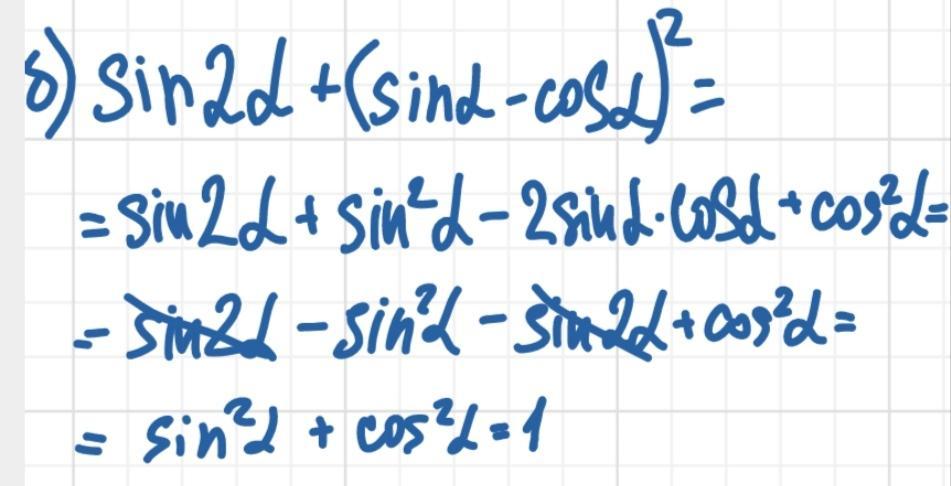 б) sin2α + (sinα - cosα)² =
= sin2α + sin²α - 2sinα·cosα + cos²α =
= sin2α - sin²α - sin2α + cos²α =
= sin²α + cos²α = 1